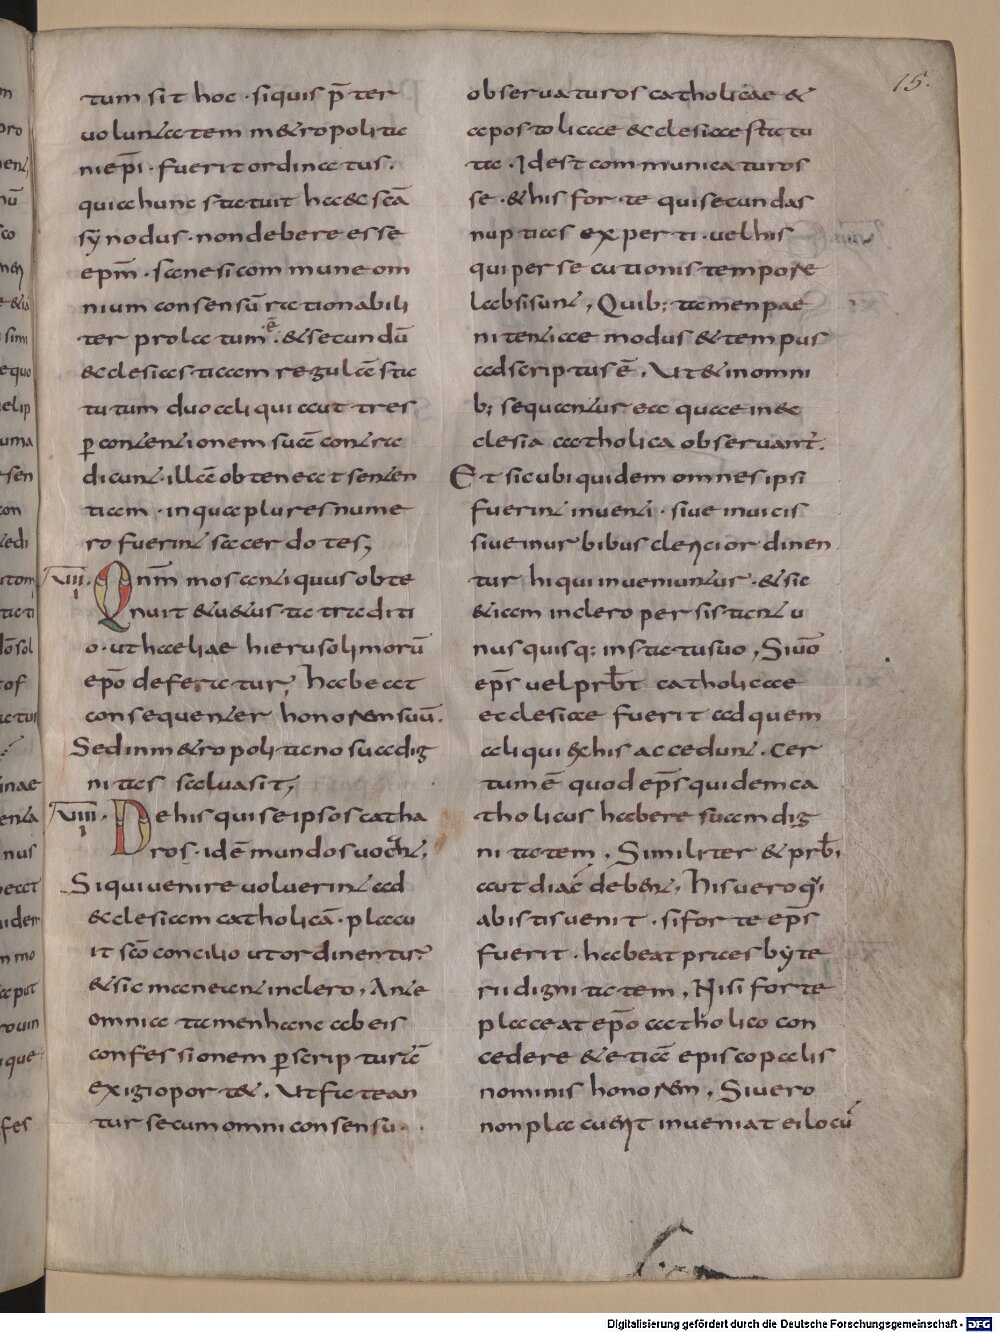 15.
tum sit hoc · siquis p̄ter
uoluntatem metropolita
ni ep̄i · fuerit ordinatus ·
quia hunc statuit haec sc̄a
synodus · non debere esse
ep̄m · sane si commune om
nium consensū rationabili
ter prolatum ē · & secundū
ecclesiasticam regulā sta
tutum duo aliqui aut tres
ꝑ contentionem suā contra
dicunt · illā obteneat senten
tiam · in qua plures nume
ro fuerint sacerdotes;
VII. Qn̄m mos antiquus obte
nuit & uetus ta traditi
o · ut haeliae hierusolimorū
ep̄o deferatur, habeat
consequenter honorem suū.
Sed in metropolitano sua dig
nitas saluasit;
VIII. De his qui se ipsos catha
ros · idē mundos uocant;
Si qui uenire uoluerint ad
ecclesiam catholicā · placu
it sc̄o concilio ut ordinentur
& sic maneant in clero, Ante
omnia tamen hanc ab eis
confessionem ꝑ scripturā
exigi oportet, Ut fatean
tur se cum omni consensu ·
obseruaturos catholicae &
apostolicae ecclesiae statu
ta · Id est communicaturos
se · & his forte qui secundas
nuptias experti · uel his
qui persecutionis tempore
labsi sunt, Quib; tamen pae
nitentiae modus & tempus
adscriptus ē, Ut & in omni
b; sequantur ea quae in ec
clesia catholica obseruant̃.
Et sicubi quidem omnes ipsi
fuerint inuenti · siue in uicis
siue in urbibus clerici ordinen
tur hi qui inueniuntur · & sic
etiam in clero persistant u
nusquisq: in statu suo, Si uō
ep̄s uel prb̄t catholicae
ecclesiae fuerit ad quem
aliqui ex his accedunt · Cer
tum ē quod ep̄s quidem ca
tholicus habere suam dig
nitatem, Similiter & prb̄i
aut diac̄ debent, his uero qui
ab istis uenit · si forte ep̄s
fuerit · habeat praesbyte
rii dignitatem, Nisi forte
placeat ep̄o catholico con
cedere & etiā episcopalis
nominis honorem, Si uero
non placuerit inueniat ei locū
Digitalisierung gefördert durch die Deutsche Forschungsgemeinschaft - DFG